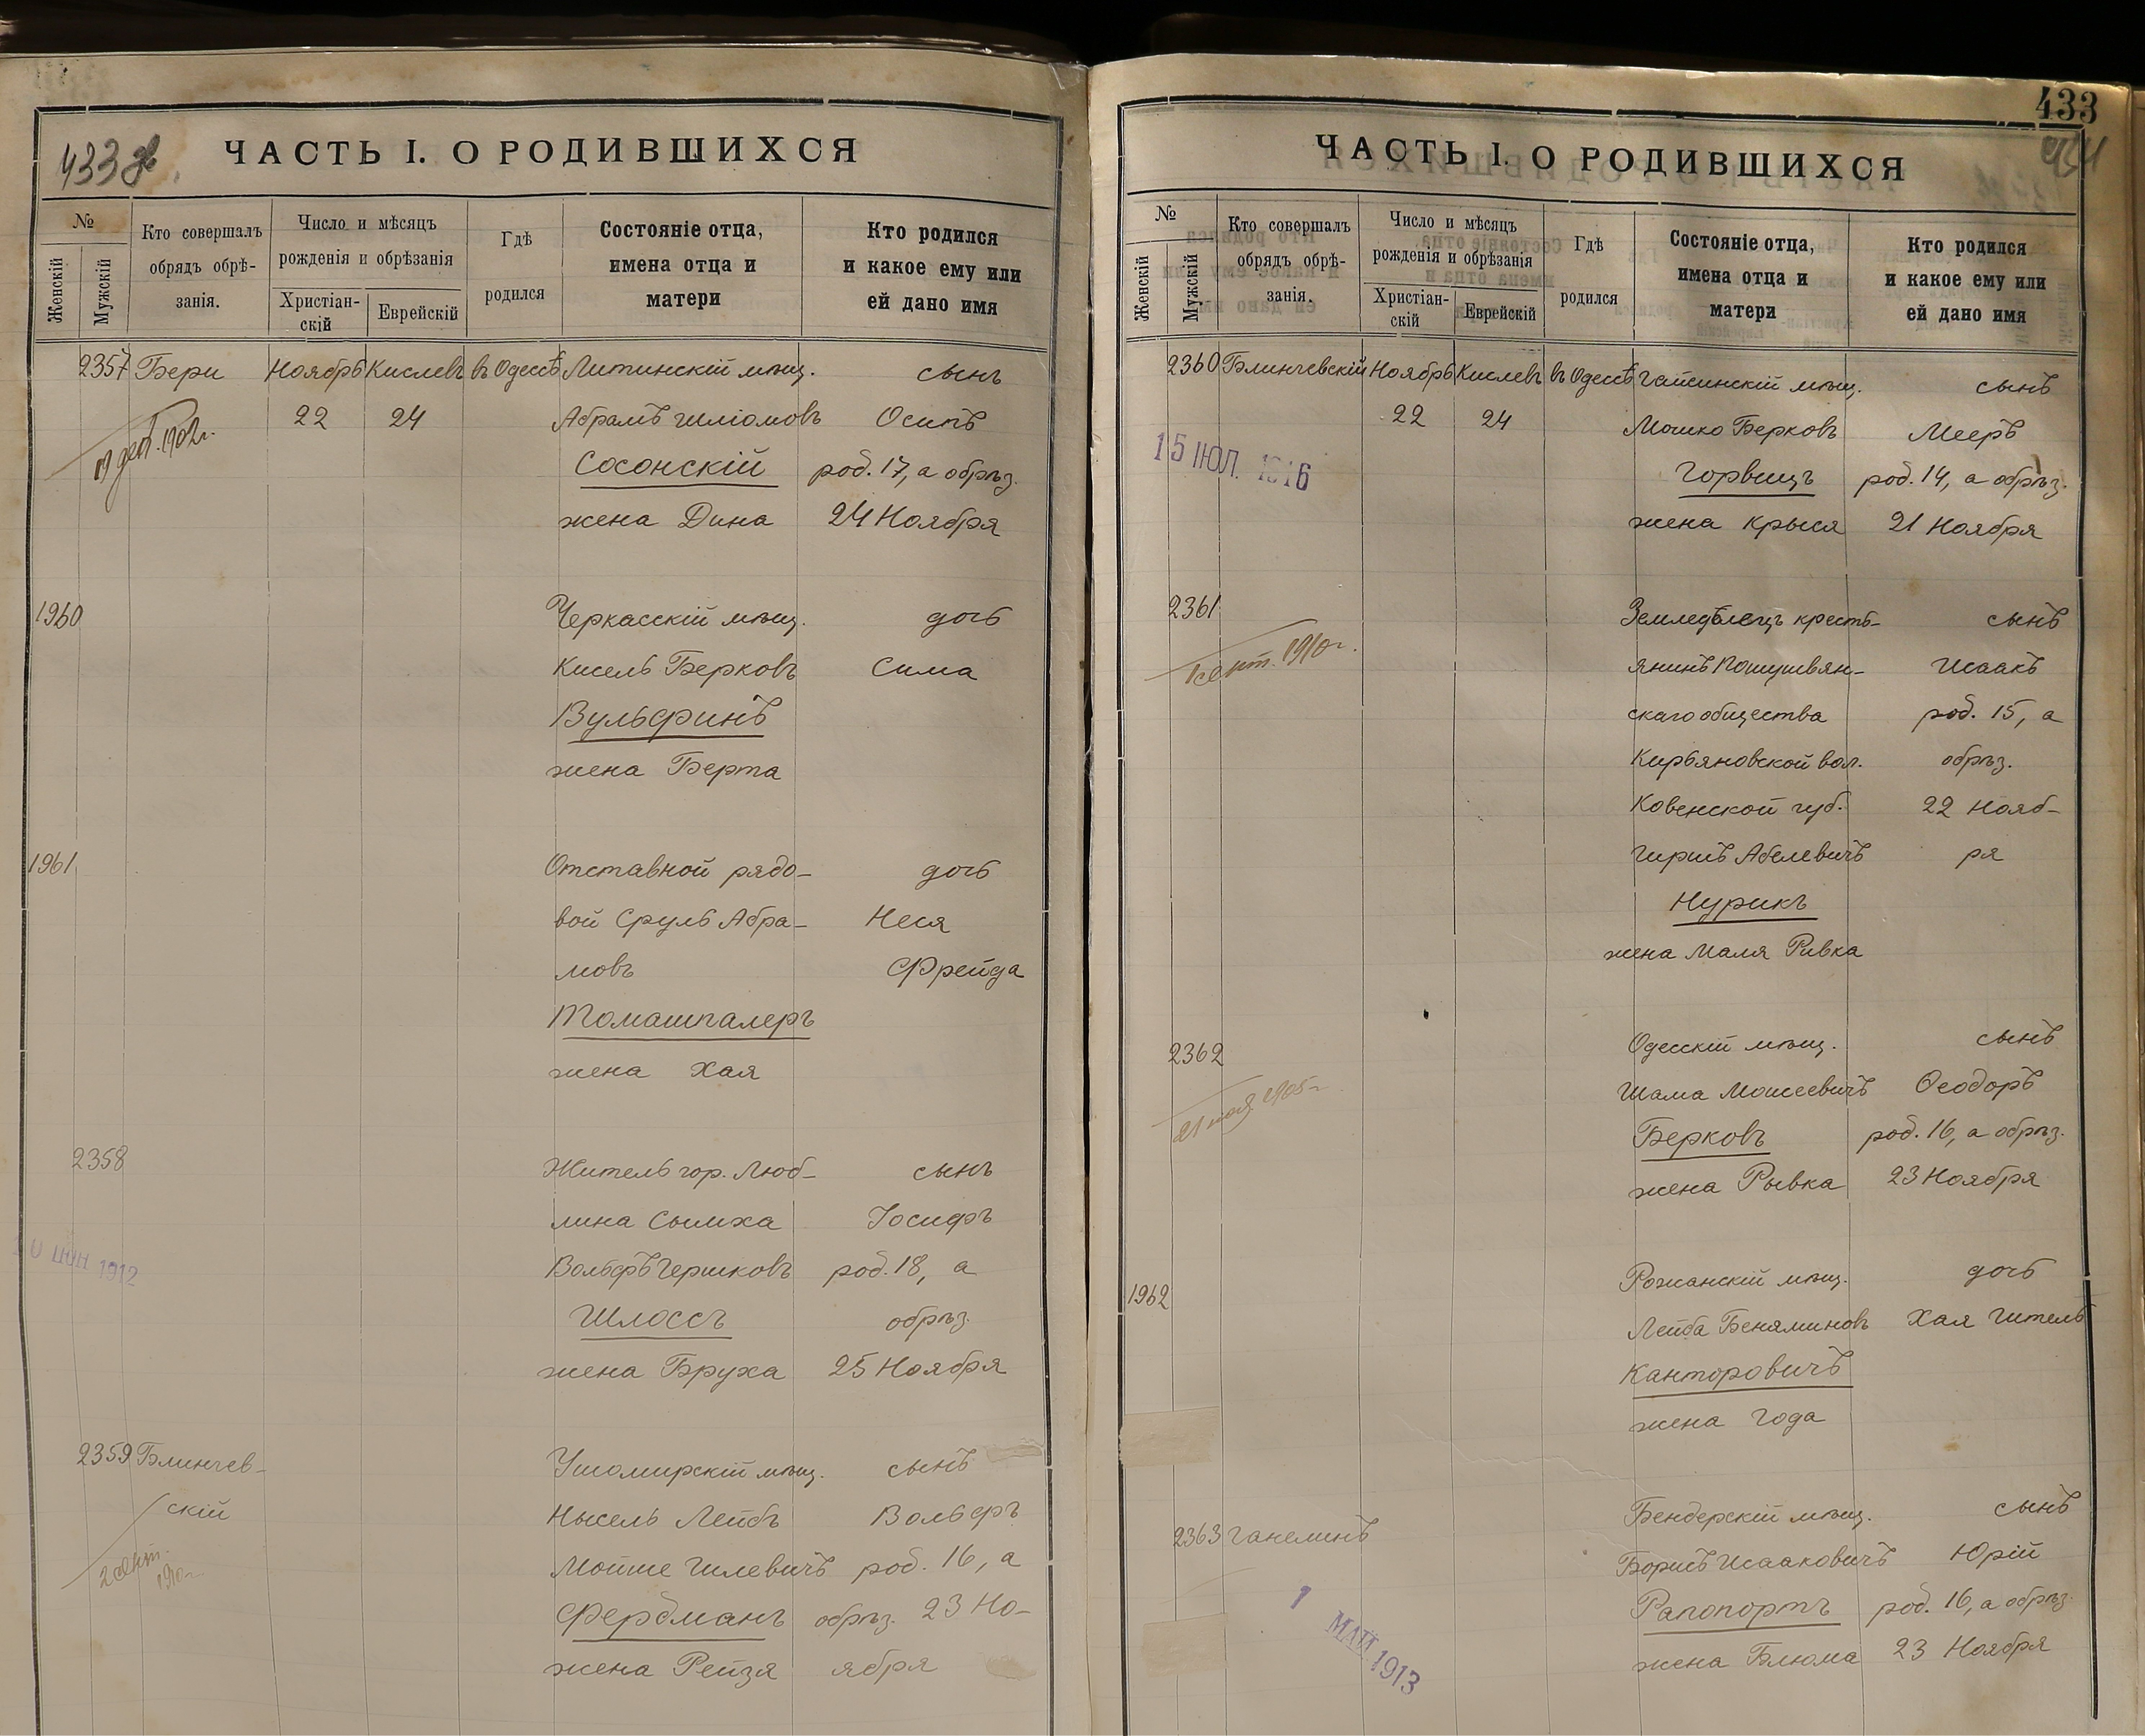 433 об.
ЧАСТЬ I. О РОДИВШИХСЯ
№
Женскій
Мужскій
Кто совершалъ
обрядъ обрѣ-
занія.
Число и мѣсяцъ
рожденія и обрѣзанія
Христіан-
скій
Еврейскій
Гдѣ
родился
Состояніе отца,
имена отца и
матери
Кто родился
и какое ему или
ей дано имя
2357 Бери Ноябрь Кислевъ въ Одессѣ Литинскій мѣщ. сынъ
22 24 Абрамъ Шліомовъ Осипъ
19 дек. 1902 г.
Сосонскій род. 17, а обрѣз.
жена Дина 24 Ноября
1960 Черкасскій мѣщ. дочь
Кисель Берковъ Сима
Вульфинъ
жена Берта
1961 Отставной рядо- дочь
вой Сруль Абра- Неся
мовъ Фрейда
Томашпалеръ
жена Хая
2358 Житель гор. Люб- сынъ
лина Сымха Іосифъ
Вольфъ Гершковъ род. 18, а
ИЮН 1912
Шлоссъ обрѣз.
жена Бруха 25 Ноября
2359 Блинчев- Ушомирскій мѣщ. сынъ
скій Нысель Лейбъ Вольфъ
2 сент. 1910 г.
Мойше Гилевичъ род. 16, а
Фербманъ обрѣз. 23 Но-
жена Рейзя ября
433
ЧАСТЬ I. О РОДИВШИХСЯ
№
Женскій
Мужскій
Кто совершалъ
обрядъ обрѣ-
занія.
Число и мѣсяцъ
рожденія и обрѣзанія
Христіан-
скій
Еврейскій
Гдѣ
родился
Состояніе отца,
имена отца и
матери
Кто родился
и какое ему или
ей дано имя
2360 Блинчевскій Ноябрь Кислевъ въ Одессѣ Гайсинскій мѣщ. сынъ
22 24 Мошко Берковъ Мееръ
15 ИЮЛ. 1916
Горвицъ род. 14, а обрѣз.
жена Крыся 21 Ноября
2361 Земледѣлецъ кресть- сынъ
1 сент. 1910 г.
янинъ Исаакъ
скаго общества род. 15, а
Кирьяновской вол. обрѣз.
Ковенской губ. 22 Нояб-
Гиршъ Абелевичъ ря
Нурикъ
жена Маля Ривка
2362 Одесскій мѣщ. сынъ
21 мая 1905 г.
Шама Мошеевичъ Ѳеодоръ
Берковъ род. 16, а обрѣз.
жена Рывка 23 Ноября
1962 Рожанскій мѣщ. дочь
Лейба Беняминовъ Хая Гитель
Канторовичъ
жена Года
2363 Ганелинъ Бендерскій мѣщ. сынъ
Борисъ Исааковичъ Юрій
1 МАЙ 1913
Рапопортъ род. 16, а обрѣз.
жена Блюма 23 Ноября